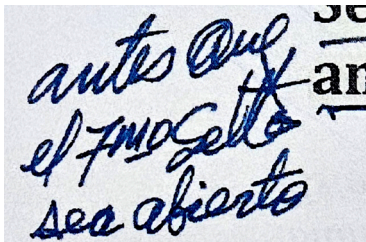 antes que
el 7mo Sello
sea abierto
an